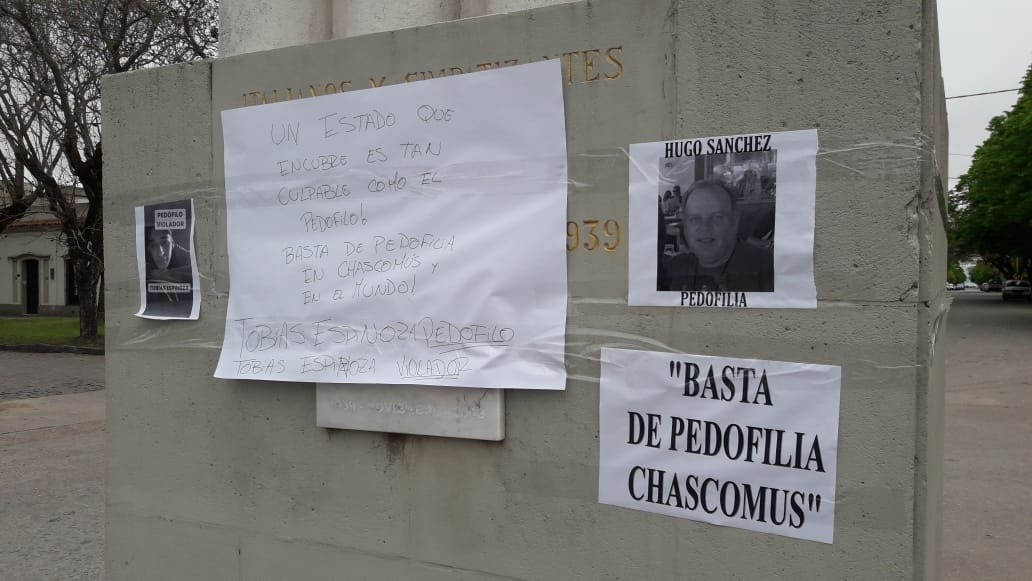 ITALIANOS Y SIMPATIZANTES
939
PEDÓFILO
VIOLADOR
TOBIAS ESPINOZA
UN ESTADO QUE
ENCUBRE ES TAN
CULPABLE COMO EL
PEDOFILO!
BASTA DE PEDOFILIA
EN CHASCOMÚS Y
EN EL MUNDO!
TOBIAS ESPINOZA PEDOFILO
TOBIAS ESPINOZA VIOLADOR
HUGO SANCHEZ
PEDOFILIA
"BASTA
DE PEDOFILIA
CHASCOMUS"